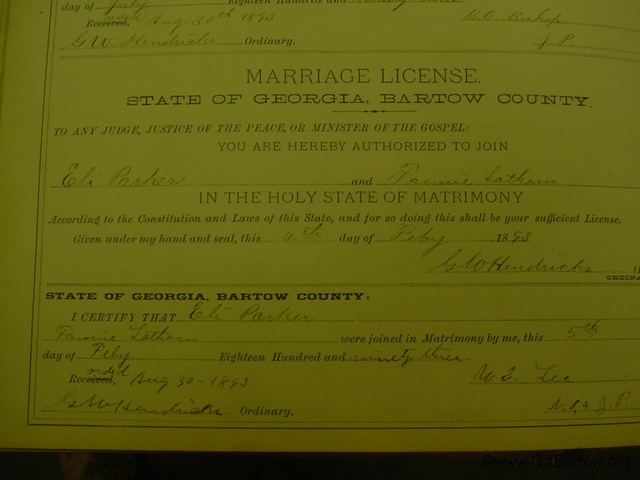 day of July Eighteen Hundred and
Received, ordrd Aug 30th 1893 B.D. Bishop
G W Hendricks Ordinary. J. P.
MARRIAGE LICENSE.
STATE OF GEORGIA, BARTOW COUNTY.
TO ANY JUDGE, JUSTICE OF THE PEACE, OR MINISTER OF THE GOSPEL:
YOU ARE HEREBY AUTHORIZED TO JOIN
Eli Parker and Fannie Latham
IN THE HOLY STATE OF MATRIMONY
According to the Constitution and Laws of this State, and for so doing this shall be your sufficient License.
Given under my hand and seal, this 4th day of Feby 1893
G W Hendricks
ORDINA
STATE OF GEORGIA, BARTOW COUNTY:
I CERTIFY THAT Eli Parker
Fannie Latham were joined in Matrimony by me, this 5th
day of Feby Eighteen Hundred and ninety three
Received, ordrd Aug 30 - 1893 W. E. Lee
G W Hendricks Ordinary. J. P.
©www.GaBartow.org